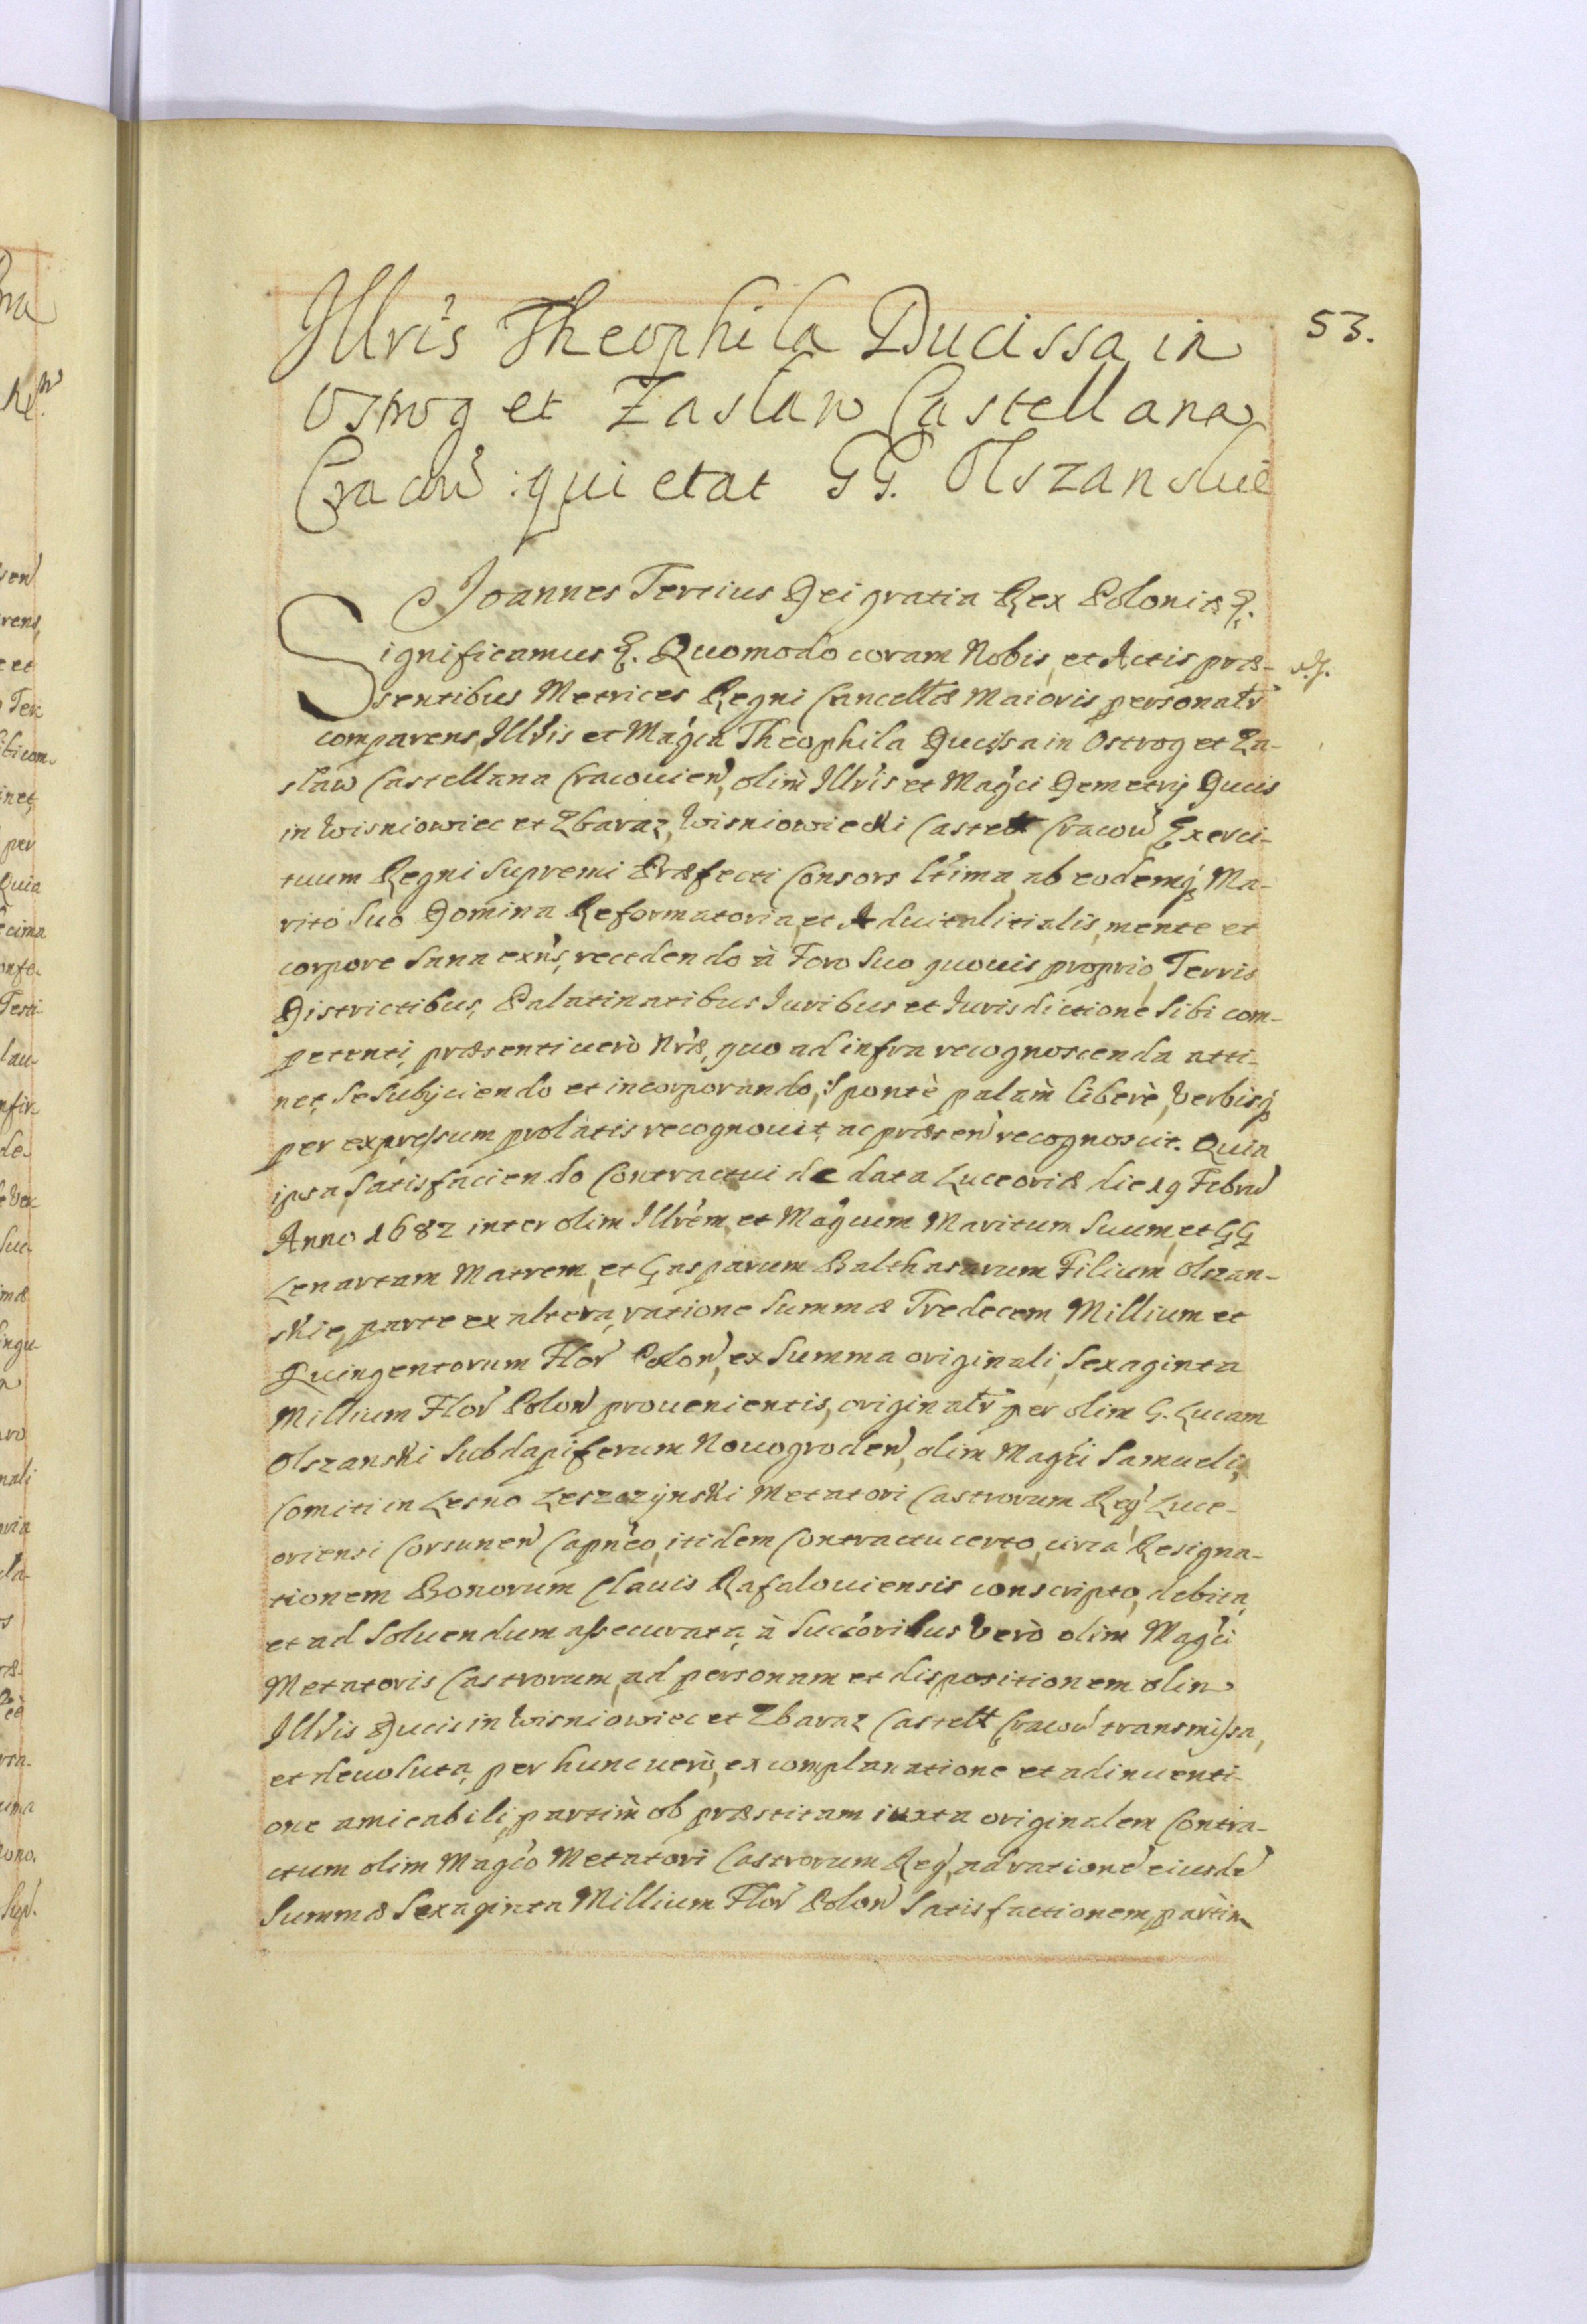 53.
Illris Theophila Ducissa in
Ostrog et Zaslaw Castellana
Cracow: quietat GG. Olszanskie
Joannes Tertius Dei gratia Rex Poloniæ &.
Significamus &. Quomodo coram Nobis, et Actis præ-
sentibus Metrices Regni Cancellæ Maioris personalr
comparens, Illris et Magca Theophila Ducissa in Ostrog et Za-
slaw Castellana Cracouien, olim Illris et Magci Demetrij Ducis
in Wisniowiec et Zbaraz, Wisniowiecki Castell Cracow Exerci-
tuum Regni Supremi Præfecti Consors Ltima, ab eodemq Ma-
rito Suo Domina Reformatoria, et Aduitalitialis, mente et
corpore Sana exns, recedendo à Foro Suo quouis proprio, Terris
Districtibus, Palatinatibus Iuribus et Iurisdictione Sibi com-
petenti, præsenti verò Nræ, quo ad infra recognoscenda atti-
net, Se Subijciendo et incorporando, Spontè palàm liberè, verbisq
per expressum prolatis recognouit, ac præsen recognoscit. Quia
ipsa Satisfaciendo Contractui de data Luceoriæ die 19 Febru
Anno 1682 inter olim Illrem et Magcum Maritum Suum, et GG
Lenartam Matrem, et Gasparum Balthasarum Filium Olszan-
skie, parte ex altera, ratione Summæ Tredecem Millium et
Quingentorum Flor Polon, ex Summa originali, Sexaginta
Millium Flor Polon prouenientis, originalr per olim G. Lucam
Olszanski Subdapiferum Nouogroden, olim Magci Samueli,
Comiti in Lesno Leszczynski Metatori Castrorum Reg Luce-
oriensi Corsunen Capneo, itidem Contractu certo, circa Resigna-
tionem Bonorum Clauis Rafalouiensis conscripto, debita,
et ad Soluendum assecurata, à Succoribus verò olim Magci
Metatoris Castrorum, ad personam et dispositionem olim
Illris Ducis in Wisniowiec et Zbaraz Castell Cracow transmissa,
et deuoluta, per hunc verò, ex complanatione et adinuenti-
one amicabili, partim ob præstitam iuxta originalem Contra-
ctum olim Magco Metatori Castrorum Reg, ad rationē eiusdē
Summæ Sexaginta Millium Flor Polon Satisfactionem, partim